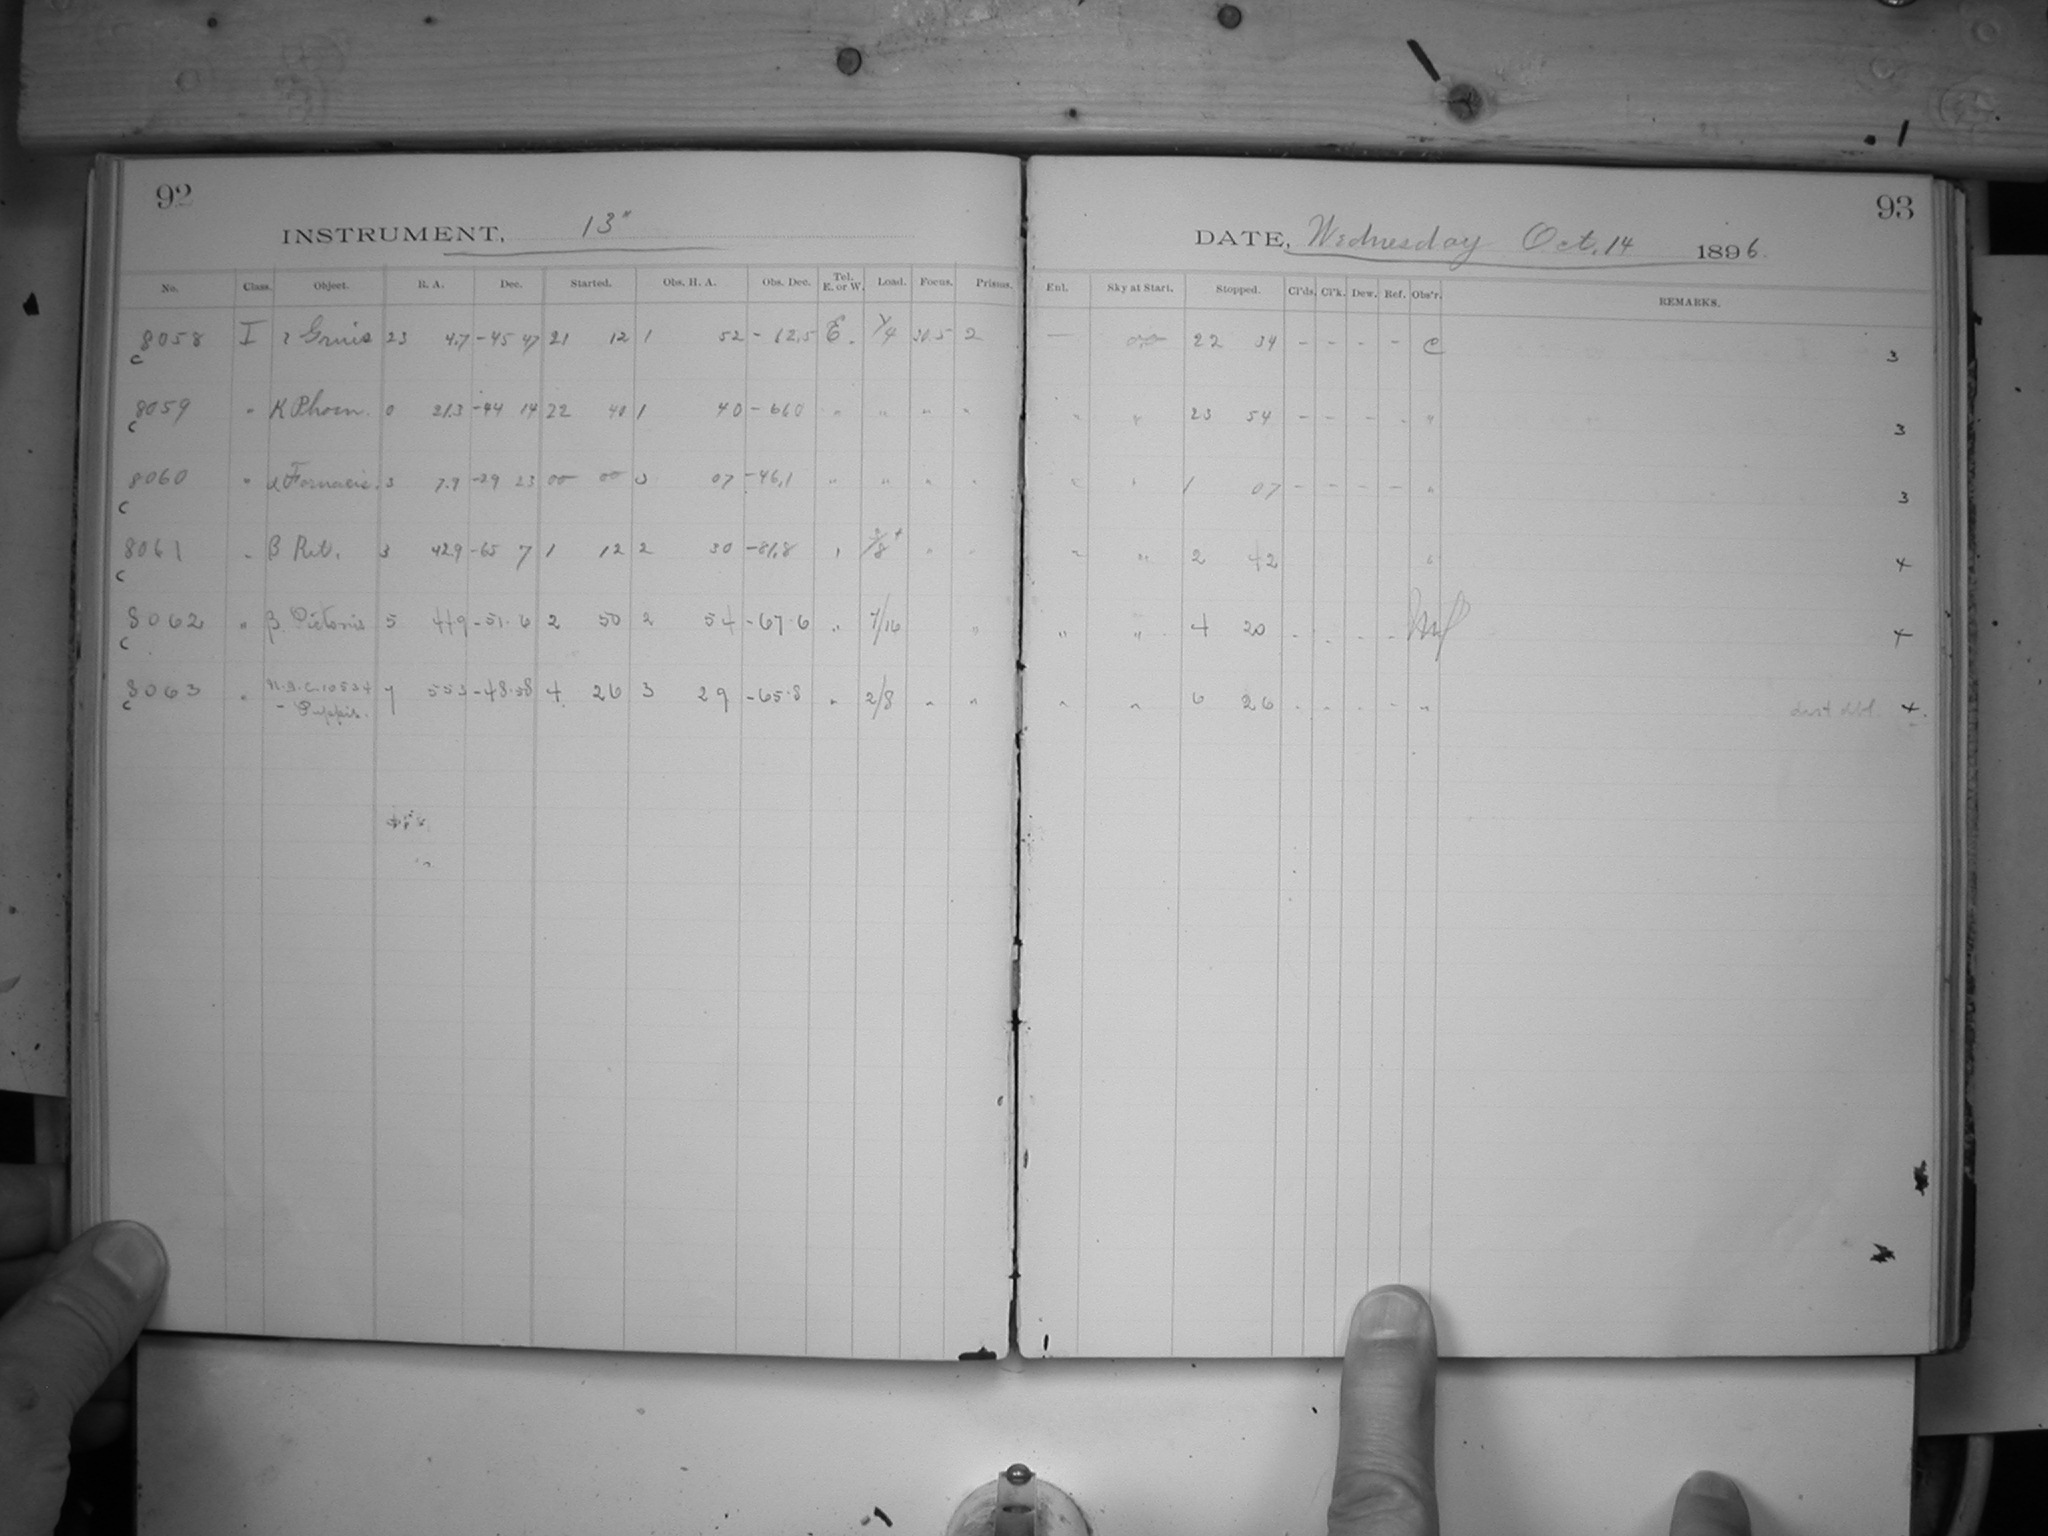 92
INSTRUMENT, 13"
No. Class. Object. R. A. Dec. Started. Obs. H. A. Obs. Dec. Tel. E. or W. Load. Focus. Prisms.
8058 I Gruis 23 4.7 -45 47 21 12 1 52 - 62.5 E. 1/4 30.5 2
c
8059 " K Phoen. 0 21.3 -44 14 22 40 1 40 - 66.0 " " " "
c
8060 " α Fornacis. 3 7.7 -29 23 00 00 3 07 -46.1 " " " "
c
8061 " β Ret. 3 42.9 -65 7 1 12 2 30 -81.8 " " "
c
8062 " β. Pictoris 5 44.9 -51. 6 2 50 2 54 -67.6 " 7/16 "
c
8063 " 10534 7 55.3 -48.58 4 26 3 29 -65.8 " 2/8 " "
c - Puppis.
93
DATE, Wednesday Oct. 14 1896.
Enl. Sky at Start. Stopped. Cl'ds. Cl'k. Dew. Ref. Obs'r. REMARKS.
— 00 22 34 - - - - C 3
" " 23 54 - - - - " 3
" " 1 07 - - - - " 3
" " 2 42 " 4
" " 4 20 - - - - 4
" " 6 26 - - - - " 4.